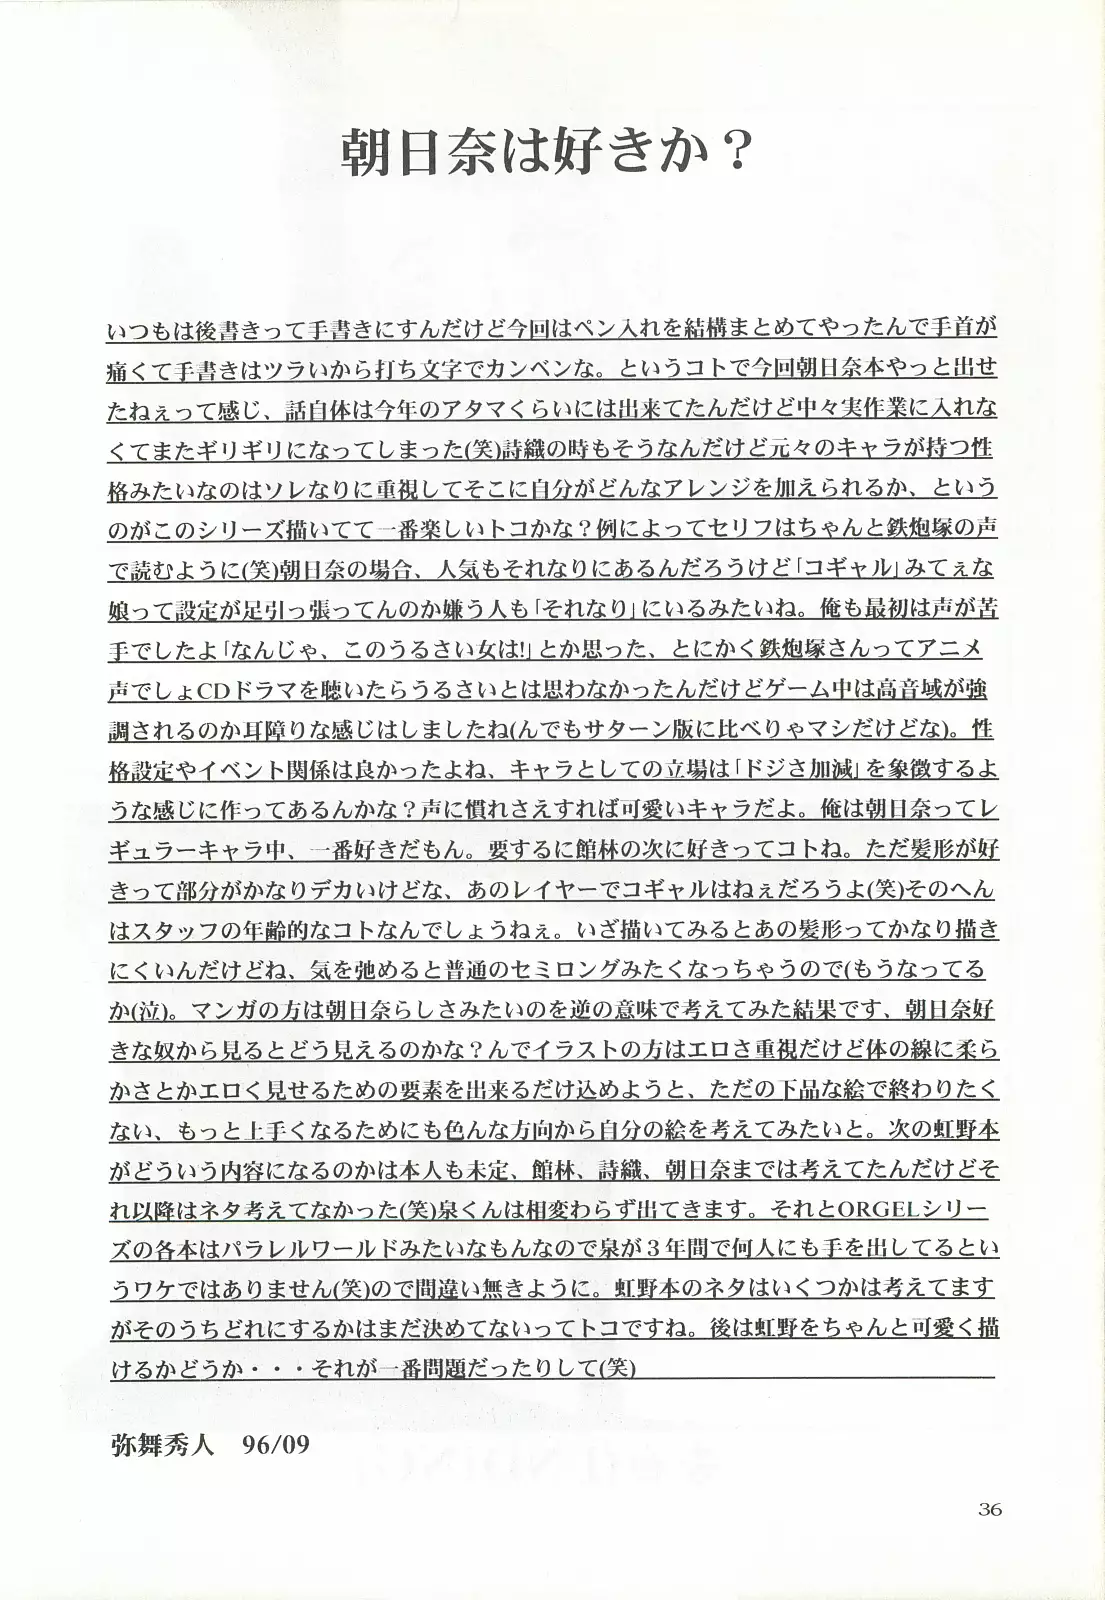 朝日奈は好きか？
いつもは後書きって手書きにすんだけど今回はペン入れを結構まとめてやったんで手首が
痛くて手書きはツラいから打ち文字でカンベンな。というコトで今回朝日奈本やっと出せ
たねぇって感じ、話自体は今年のアタマくらいには出来てたんだけど中々実作業に入れな
くてまたギリギリになってしまった(笑)詩織の時もそうなんだけど元々のキャラが持つ性
格みたいなのはソレなりに重視してそこに自分がどんなアレンジを加えられるか、という
のがこのシリーズ描いてて一番楽しいトコかな？例によってセリフはちゃんと鉄炮塚の声
で読むように(笑)朝日奈の場合、人気もそれなりにあるんだろうけど「コギャル」みてぇな
娘って設定が足引っ張ってんのか嫌う人も「それなり」にいるみたいね。俺も最初は声が苦
手でしたよ「なんじゃ、このうるさい女は!」とか思った、とにかく鉄炮塚さんってアニメ
声でしょCDドラマを聴いたらうるさいとは思わなかったんだけどゲーム中は高音域が強
調されるのか耳障りな感じはしましたね(んでもサターン版に比べりゃマシだけどな)。性
格設定やイベント関係は良かったよね、キャラとしての立場は「ドジさ加減」を象徴するよ
うな感じに作ってあるんかな？声に慣れさえすれば可愛いキャラだよ。俺は朝日奈ってレ
ギュラーキャラ中、一番好きだもん。要するに館林の次に好きってコトね。ただ髪形が好
きって部分がかなりデカいけどな、あのレイヤーでコギャルはねぇだろうよ(笑)そのへん
はスタッフの年齢的なコトなんでしょうねぇ。いざ描いてみるとあの髪形ってかなり描き
にくいんだけどね、気を弛めると普通のセミロングみたくなっちゃうので(もうなってる
か(泣)。マンガの方は朝日奈らしさみたいのを逆の意味で考えてみた結果です、朝日奈好
きな奴から見るとどう見えるのかな？んでイラストの方はエロさ重視だけど体の線に柔ら
かさとかエロく見せるための要素を出来るだけ込めようと、ただの下品な絵で終わりたく
ない、もっと上手くなるためにも色んな方向から自分の絵を考えてみたいと。次の虹野本
がどういう内容になるのかは本人も未定、館林、詩織、朝日奈までは考えてたんだけどそ
れ以降はネタ考えてなかった(笑)泉くんは相変わらず出てきます。それとORGELシリー
ズの各本はパラレルワールドみたいなもんなので泉が３年間で何人にも手を出してるとい
うワケではありません(笑)ので間違い無きように。虹野本のネタはいくつかは考えてます
がそのうちどれにするかはまだ決めてないってトコですね。後は虹野をちゃんと可愛く描
けるかどうか・・・それが一番問題だったりして(笑)
弥舞秀人　96/09
36